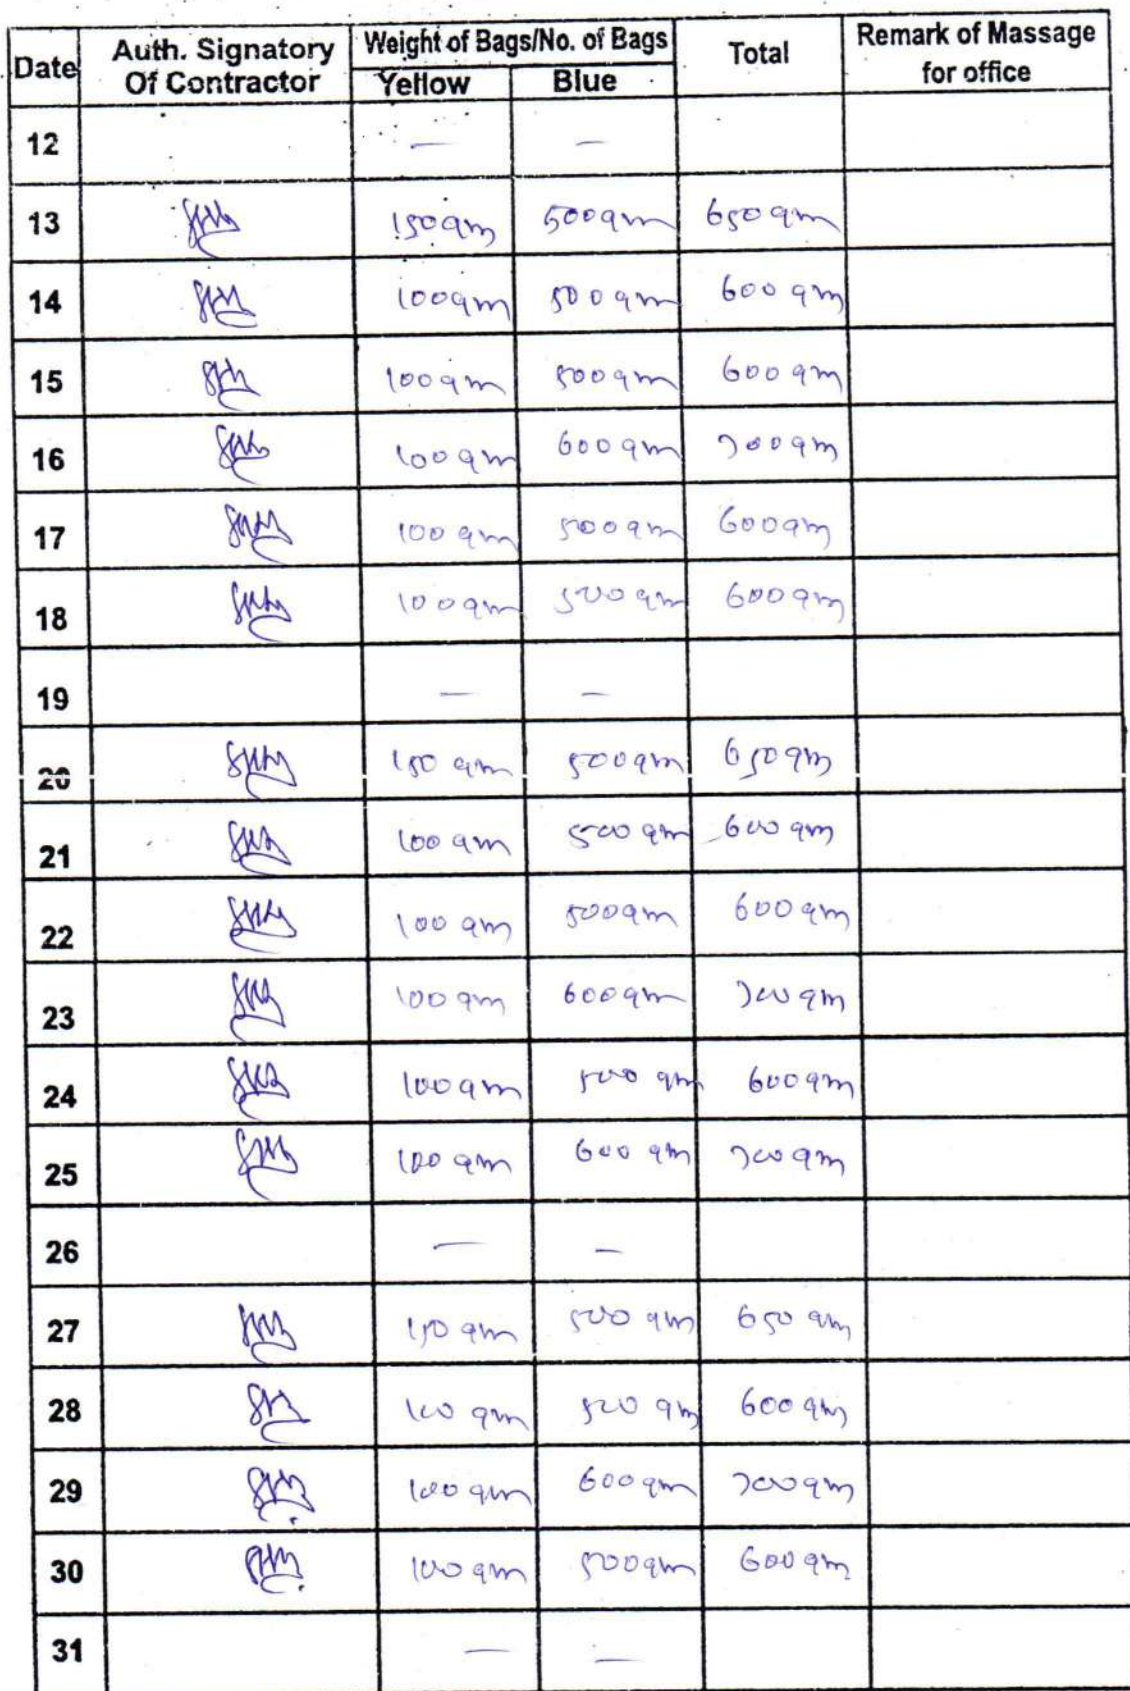 Date Auth. Signatory Of Contractor Weight of Bags/No. of Bags Yellow Blue Total Remark of Massage for office
12 — —
13 150gm 500gm 650gm
14 100gm 500gm 600gm
15 100gm 500gm 600gm
16 100gm 600gm 700gm
17 100gm 500gm 600gm
18 100gm 500gm 600gm
19 — —
20 150gm 500gm 650gm
21 100gm 500gm 600gm
22 100gm 500gm 600gm
23 100gm 600gm 700gm
24 100gm 500gm 600gm
25 100gm 600gm 700gm
26 — —
27 150gm 500gm 650gm
28 100gm 500gm 600gm
29 100gm 600gm 700gm
30 100gm 500gm 600gm
31 — —